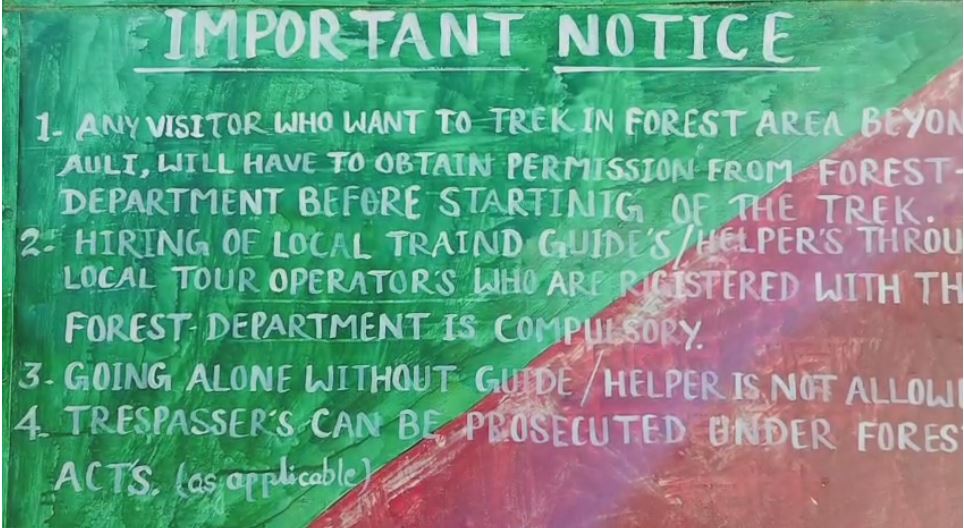 IMPORTANT NOTICE
1- ANY VISITOR WHO WANT TO TREK IN FOREST AREA BEYON
AULI, WILL HAVE TO OBTAIN PERMISSION FROM FOREST-
DEPARTMENT BEFORE STARTINIG OF THE TREK.
2- HIRING OF LOCAL TRAIND GUIDE'S/HELPER'S THROU
LOCAL TOUR OPERATOR'S WHO ARE RIGISTERED WITH TH
FOREST-DEPARTMENT IS COMPULSORY.
3- GOING ALONE WITHOUT GUIDE/HELPER IS NOT ALLOWE
4- TRESPASSER'S CAN BE PROSECUTED UNDER FORES
ACT'S. (as applicable)